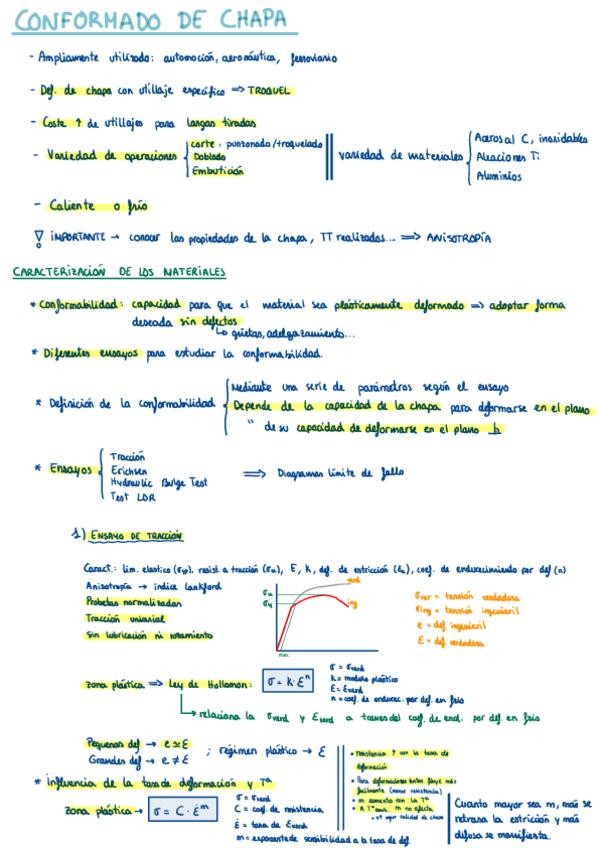 CONFORMADO DE CHAPA
- Ampliamente utilizado: automoción, aeronáutica, ferroviario
- Def. de chapa con utillaje específico => TROQUEL
- Coste ↑ de utillajes para largas tiradas
- Variedad de operaciones
corte: punzonado/troquelado
Doblado
Embutición
variedad de materiales
Aceros al C, inoxidables
Aleaciones Ti
Aluminios
- Caliente o frío
! IMPORTANTE → conocer las propiedades de la chapa, TT realizadas... => ANISOTROPÍA
CARACTERIZACIÓN DE LOS MATERIALES
* Conformabilidad: capacidad para que el material sea plásticamente deformado => adoptar forma
deseada sin defectos
↳ grietas, adelgazamiento...
* Diferentes ensayos para estudiar la conformabilidad.
* Definición de la conformabilidad
Mediante una serie de parámetros según el ensayo
Depende de la capacidad de la chapa para deformarse en el plano
" de su capacidad de deformarse en el plano ⊥
* Ensayos
Tracción
Erichsen
Hydraulic Bulge Test
Test LDR
=> Diagramas límite de fallo
1) ENSAYO DE TRACCIÓN
Caract.: lim. elastico (σyp), resist a tracción (σu), E, K, def. de estricción (εu), coef. de endurecimiento por def (n)
Anisotropía → índice Lankford
Probetas normalizadas
Tracción uniaxial
Sin lubricación ni rozamiento
σu
σy
verd
ing
σver = tensión verdadera
σing = tensión ingenieril
e = def. ingenieril
ε = def. verdadera
Zona plástica => Ley de Hollomon: σ = K·εⁿ
σ = σverd
K = modulo plástico
ε = εverd
n = coef. de endurec. por def. en frío
↳ relaciona la σverd y εverd a traves del coef. de end. por def. en frío
Pequeñas def → e ≃ ε
Grandes def → e ≠ ε
; régimen plástico → ε
* Influencia de la tasa de deformación y Tª
Zona plástica → σ = C·ε̇ᵐ
σ = σverd
C = coef. de resistencia
ε̇ = tasa de εverd
m = exponente de sensibilidad a la tasa de def
• resistencia ↑ con la tasa de
deformación
• Para deformaciones lentas fluye más
fácilmente (menor resistencia)
• m aumenta con la Tª
• A Tª amb. m no afecta
Cuanto mayor sea m, más se
retrasa la estricción y más
difusa se manifiesta.